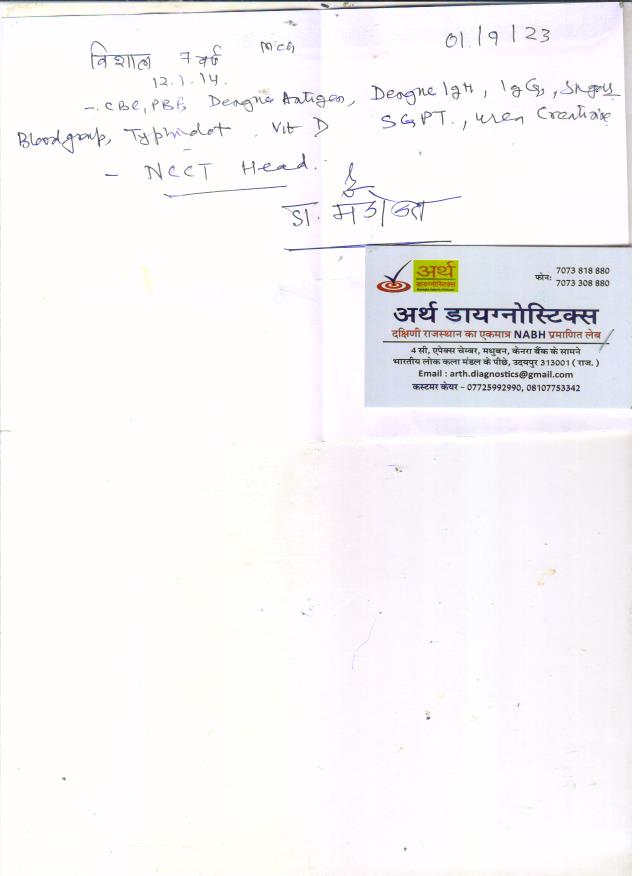 विशाल 7 वर्ष Mch 01/9/23
12.1.14.
- CBC, PBF, Dengue Antigen, Dengue IgM, IgG,
Bloodgroup, Typhidot, Vit D SGPT., uren Creatinine
- NCCT Head.
डा.
अर्थ
डायग्नोस्टिक्स
फोन: 7073 818 880
7073 308 880
अर्थ डायग्नोस्टिक्स
दक्षिणी राजस्थान का एकमात्र NABH प्रमाणित लेब
4 सी, एपेक्स चेम्बर, मधुबन, केनरा बैंक के सामने
भारतीय लोक कला मंडल के पीछे, उदयपुर 313001 ( राज. )
Email : arth.diagnostics@gmail.com
कस्टमर केयर – 07725992990, 08107753342